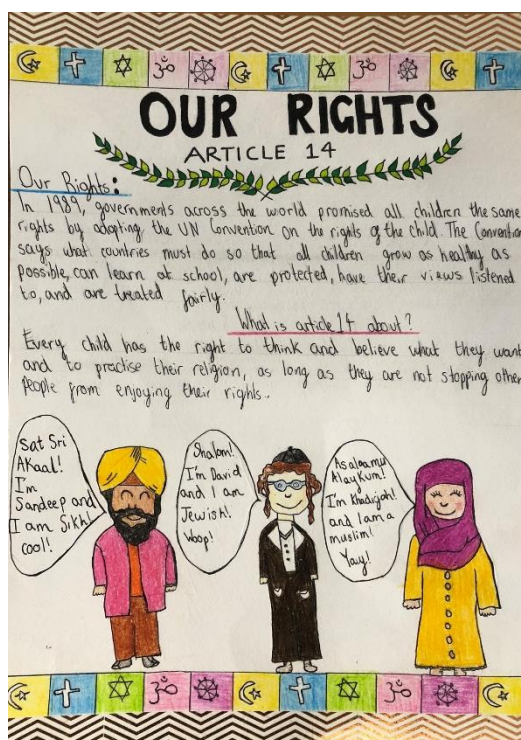 OUR RIGHTS
ARTICLE 14
Our Rights:
In 1989, governments across the world promised all children the same
rights by adopting the UN Convention on the rights of the child. The Convention
says what countries must do so that all children grow as healthy as
possible, can learn at school, are protected, have their views listened
to, and are treated fairly.
What is article 14 about?
Every child has the right to think and believe what they want
and to practise their religion, as long as they are not stopping other
people from enjoying their rights.
Sat Sri
Akaal!
I'm
Sandeep and
I am Sikh!
Cool!
Shalom!
I'm David
and I am
Jewish!
Woop!
Asalaamu
Alaykum!
I'm Khadijah!
and I am a
muslim!
Yay!